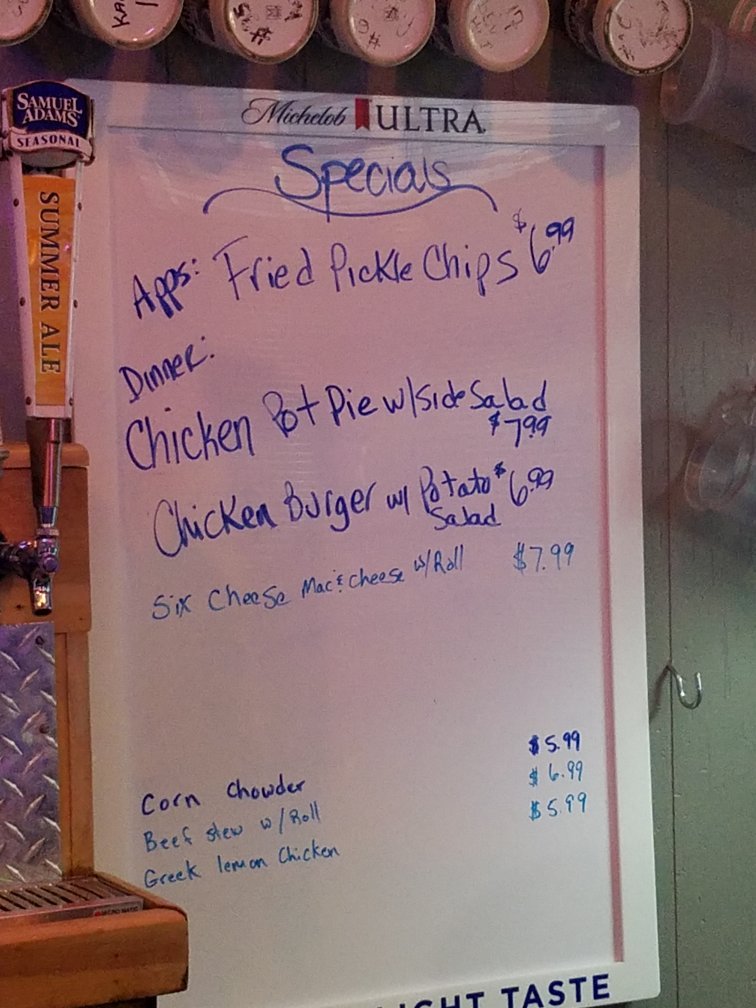 SAMUEL
ADAMS
SEASONAL
SUMMER ALE
Michelob ULTRA
Specials
Apps: Fried Pickle Chips $6.99
Dinner:
Chicken Pot Pie w/side Salad
$7.99
Chicken Burger w/ Potato $6.99
Salad
Six Cheese Mac & Cheese w/Roll $7.99
Corn Chowder $5.99
Beef stew w/Roll $6.99
Greek lemon Chicken $5.99
TASTE